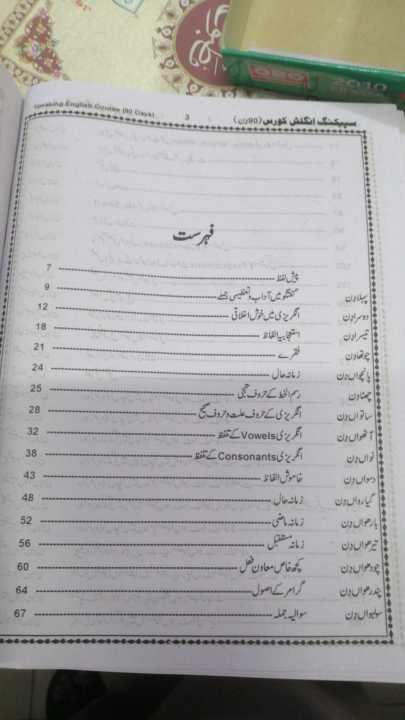 Speaking English Course (90 Days) 3 سپیکنگ انگلش کورس (90 دن)
فہرست
پیش لفظ 7
پہلا دن گفتگو میں آداب و تعظیمی جملے 9
دوسرا دن انگریزی میں خوش اخلاقی 12
تیسرا دن استعجابیہ الفاظ 18
چوتھا دن فقرے 21
پانچواں دن زمانہ حال 24
چھٹا دن رسم الخط کے حروف تہجی 25
ساتواں دن انگریزی کے حروف علت و حروف صحیح 28
آٹھواں دن انگریزی Vowels کے تلفظ 32
نواں دن انگریزی Consonants کے تلفظ 38
دسواں دن خاموش الفاظ 43
گیارواں دن زمانہ حال 48
بارھواں دن زمانہ ماضی 52
تیرھواں دن زمانہ مستقبل 56
چودھواں دن کچھ خاص معاون فعل 60
پندرھواں دن گرامر کے اصول 64
سولہواں دن سوالیہ جملہ 67